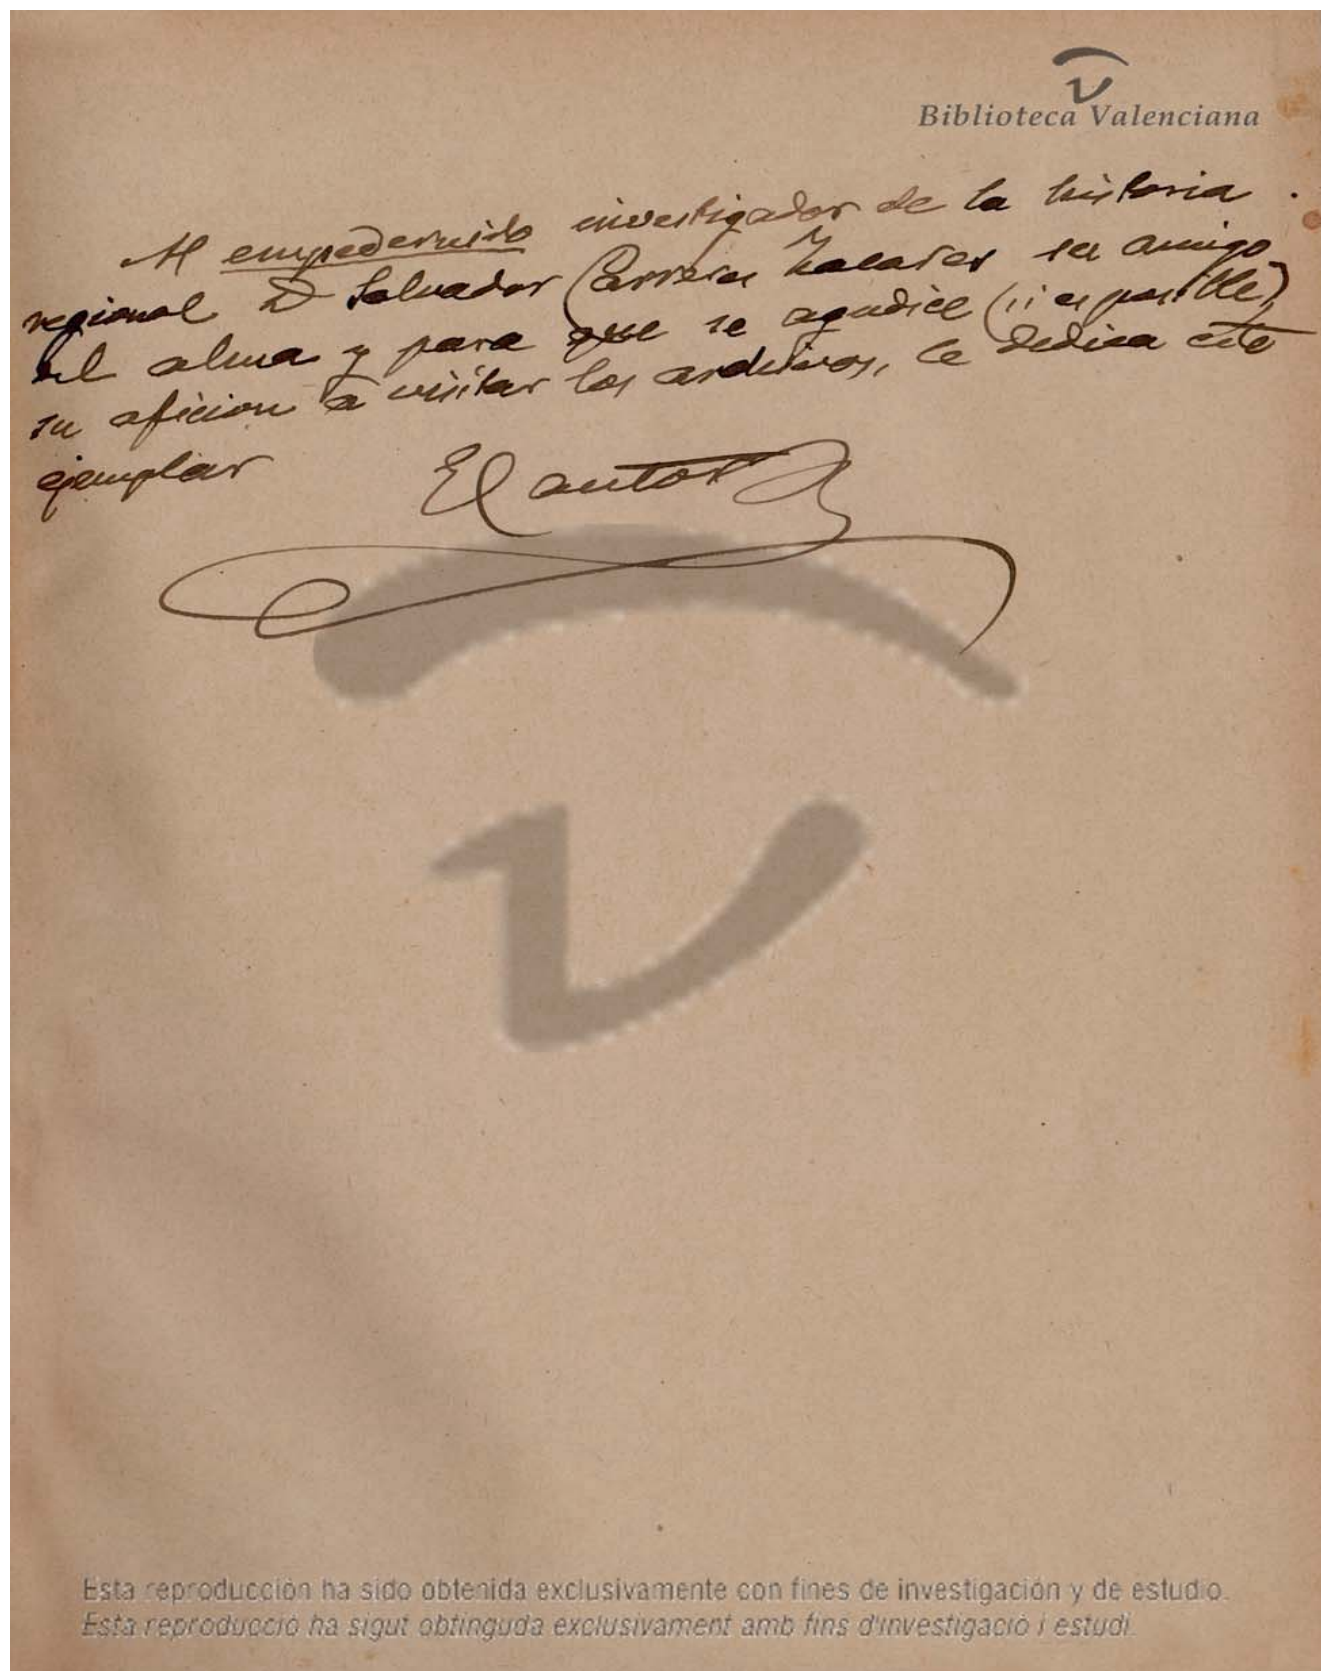 Biblioteca Valenciana
Al empedernido investigador de la historia
regional D Salvador Carreres Zacares su amigo
del alma y para que se agudice (si es posible),
su aficion a visitar los archivos, le dedica este
ejemplar
El autor
Esta reproducción ha sido obtenida exclusivamente con fines de investigación y de estudio.
Esta reproducció ha sigut obtinguda exclusivament amb fins d'investigació i estudi.